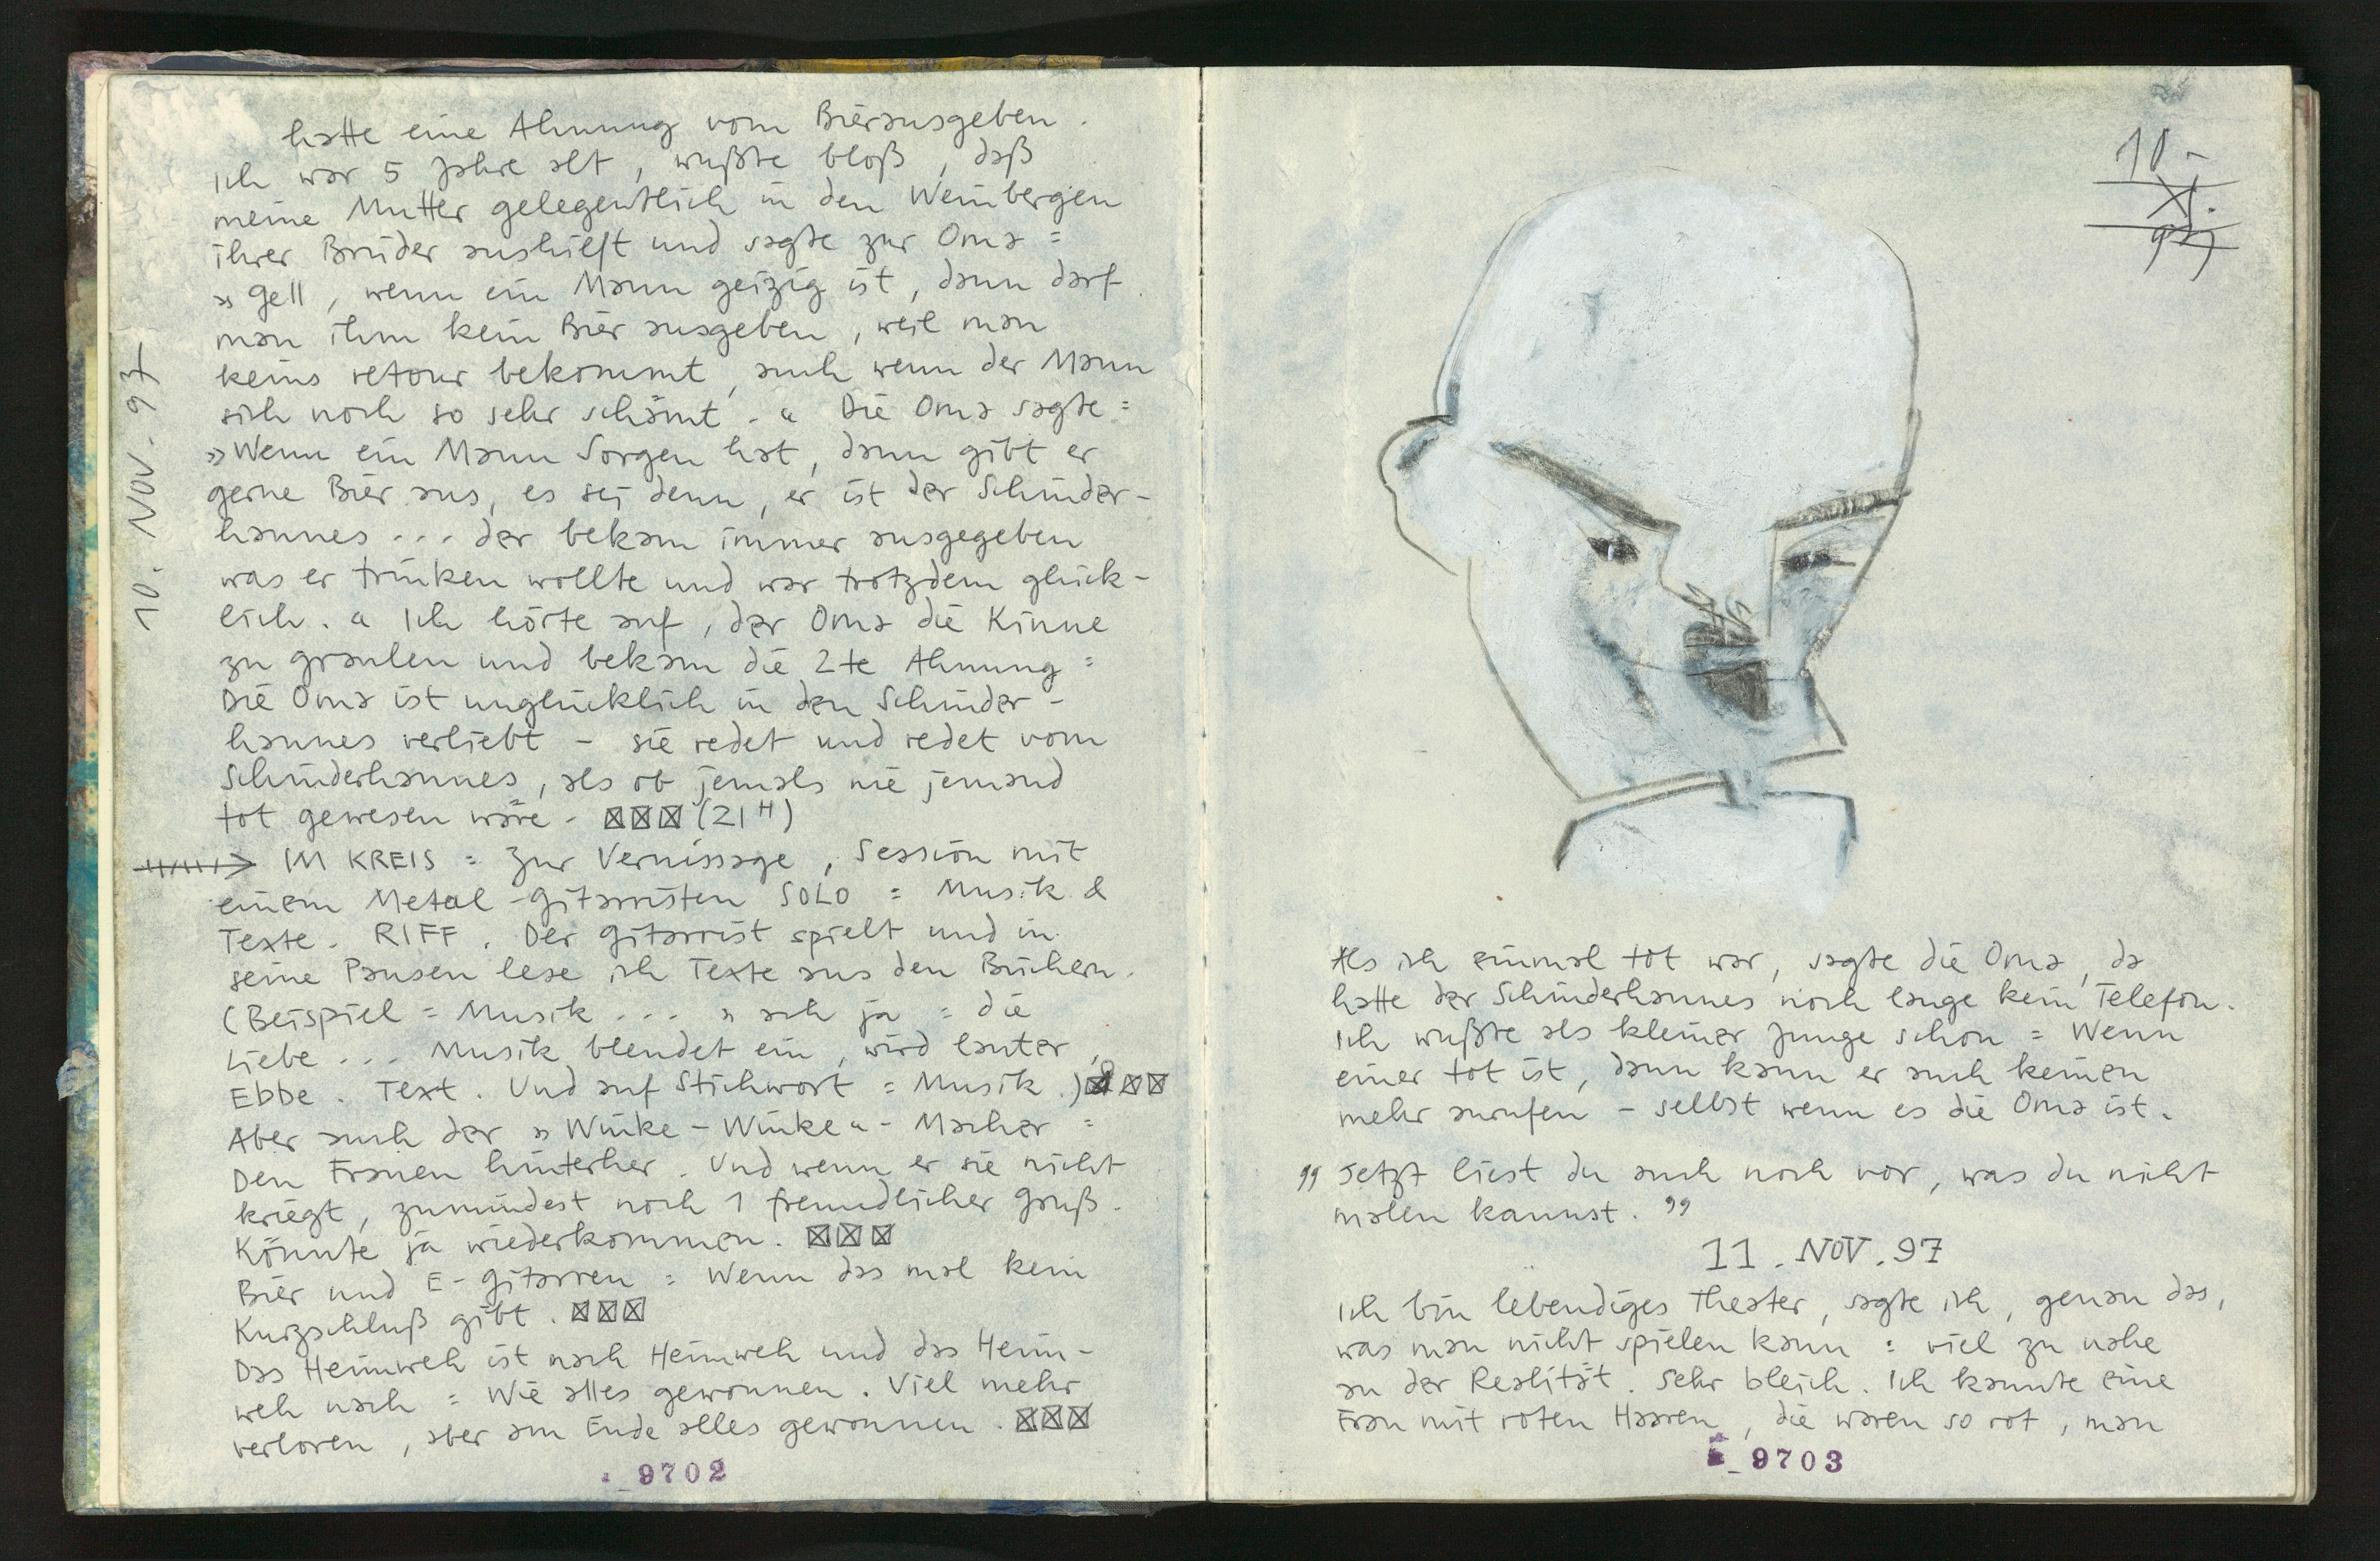 10. NOV. 97
hatte eine Ahnung vom Bierausgeben.
Ich war 5 Jahre alt, wußte bloß, daß
meine Mutter gelegentlich in den Weinbergen
ihrer Brüder aushilft und sagte zur Oma =
» Gell, wenn ein Mann geizig ist, dann darf
man ihm kein Bier ausgeben, weil man
keins retour bekommt, auch wenn der Mann
sich noch so sehr schämt. « Die Oma sagte =
» Wenn ein Mann Sorgen hat, dann gibt er
gerne Bier aus, es sei denn, er ist der Schinder-
hannes ... der bekam immer ausgegeben
was er trinken wollte und war trotzdem glück-
lich. « Ich hörte auf, der Oma die Kinne
zu graulen und bekam die 2te Ahnung =
Die Oma ist unglücklich in den Schinder-
hannes verliebt – sie redet und redet vom
Schinderhannes, als ob jemals nie jemand
tot gewesen wäre. ☒☒☒ (21 H)
IM KREIS = Zur Vernissage, Session mit
einem Metal-Gitarristen SOLO = Musik &
Texte. RIFF. Der Gitarrist spielt und in
seine Pausen lese ich Texte aus den Büchern.
(Beispiel = Musik ... » ach ja = die
Liebe ... Musik blendet ein, wird lauter,
Ebbe. Text. Und auf Stichwort = Musik.) ☒☒☒
Aber auch der » Winke-Winke « - Macher =
Den Frauen hinterher. Und wenn er sie nicht
kriegt, zumindest noch 1 freundlicher Gruß.
Könnte ja wiederkommen. ☒☒☒
Bier und E-Gitarren = Wenn das mal kein
Kurzschluß gibt. ☒☒☒
Das Heimweh ist nach Heimweh und das Heim-
weh nach = Wie alles gewonnen. Viel mehr
verloren, aber am Ende alles gewonnen. ☒☒☒
_9702
10.
XI.
97
Als ich einmal tot war, sagte die Oma, da
hatte der Schinderhannes noch lange kein Telefon.
Ich wußte als kleiner Junge schon = Wenn
einer tot ist, dann kann er auch keinen
mehr anrufen – selbst wenn es die Oma ist.
" Jetzt liest du auch noch vor, was du nicht
malen kannst. "
11. NOV. 97
Ich bin lebendiges Theater, sagte ich, genau das,
was man nicht spielen kann = viel zu nahe
an der Realität. Sehr bleich. Ich kannte eine
Frau mit roten Haaren, die waren so rot, man
_9703